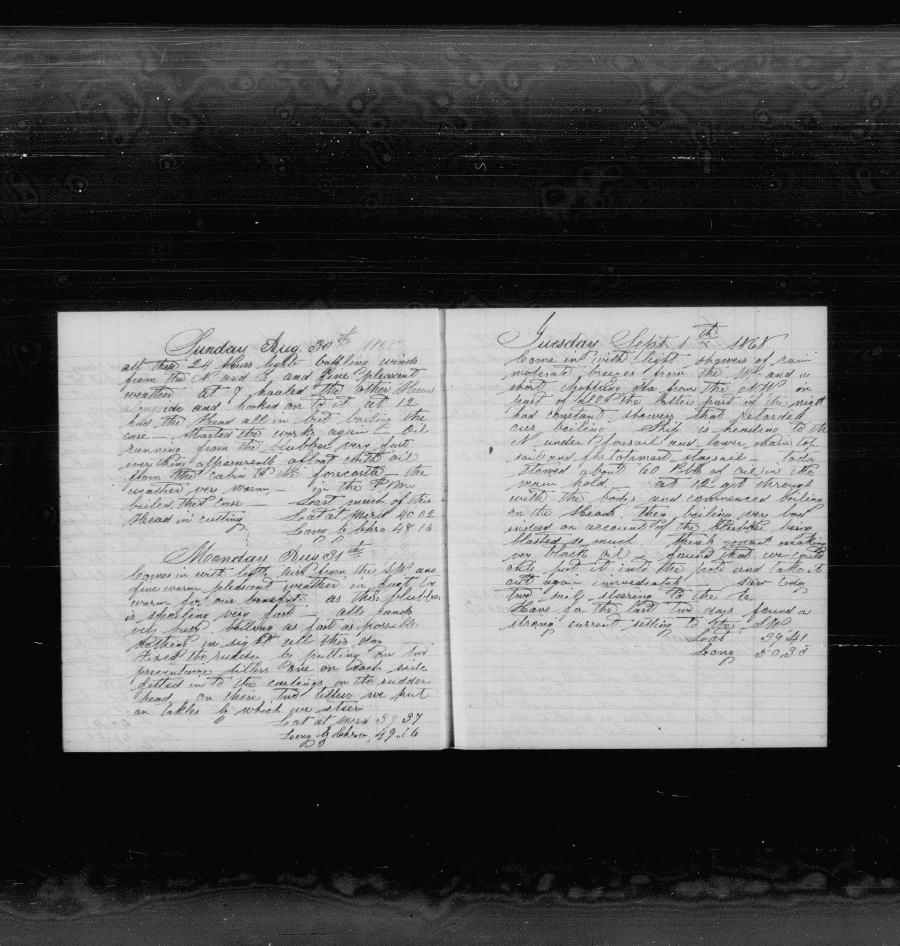 Sunday Aug 30th 1868
all these 24 Hours light baffling winds
from the N and E and fine pleasent
weather at 7 hauled the other Head
alongside and hooked on to it at 12
had the Head all in but bailing the
case - Started the works again Oil
running from the blubber very fast
everything apparently afloat with oil
from the Cabin to the forecastle - the
weather very warm - in the PM
bailed that case - Lost much of this
Head in cutting Lat at Merid 40 02
Long by Chro 48 16
Monday Aug 31th
Comes in with light airs from the SW and
fine warm pleasent weather in fact to
warm for our benefit as this blubber
is spoiling very fast - all hands
very busy boiling as fast as possible
Nothing in sight all this day
Fixed the rudder by putting on two
preventive tillers one on each side
fitted in to the on the rudder
head, on these two tillers we put
on takles by which we steer
Lat at Merid 39 37
Long by Chro 49 16
Tuesday Sept 1th 1868
Come in with light showers of rain
moderate breezes from the W and a
short chopping sea from the NW in
part of the latter part of the night
had constant showers that retarded
our boiling Ship is heading to the
N under foresail and lower main top
sail and foretopmast staysail - today
Stowed about 60 Bbls of oil in the
main hold - at 12 got through
with the body and commenced boiling
on the Heads they boiling very bad
indeed on account of the blubber being
blasted so much these making
very black oil - found that we could
only put it into the pots and take it
out again immediately - Saw today
two sail steering to the E
Have for the last two days found a
strong current setting to the SW
Lat 39 41
Long 50 30